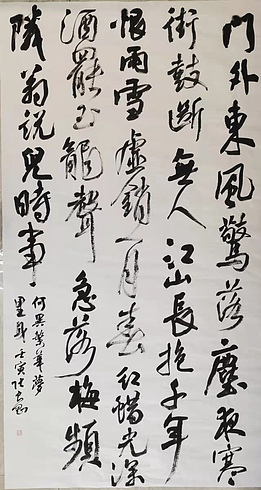 門外東風驚落塵夜寒
街鼓斷無人江山長抱千年
恨雨雪虛銷一月春紅蠟光深
酒罷玉龍聲急落梅頻
隣翁說兒時事
何異華年夢
里身壬寅